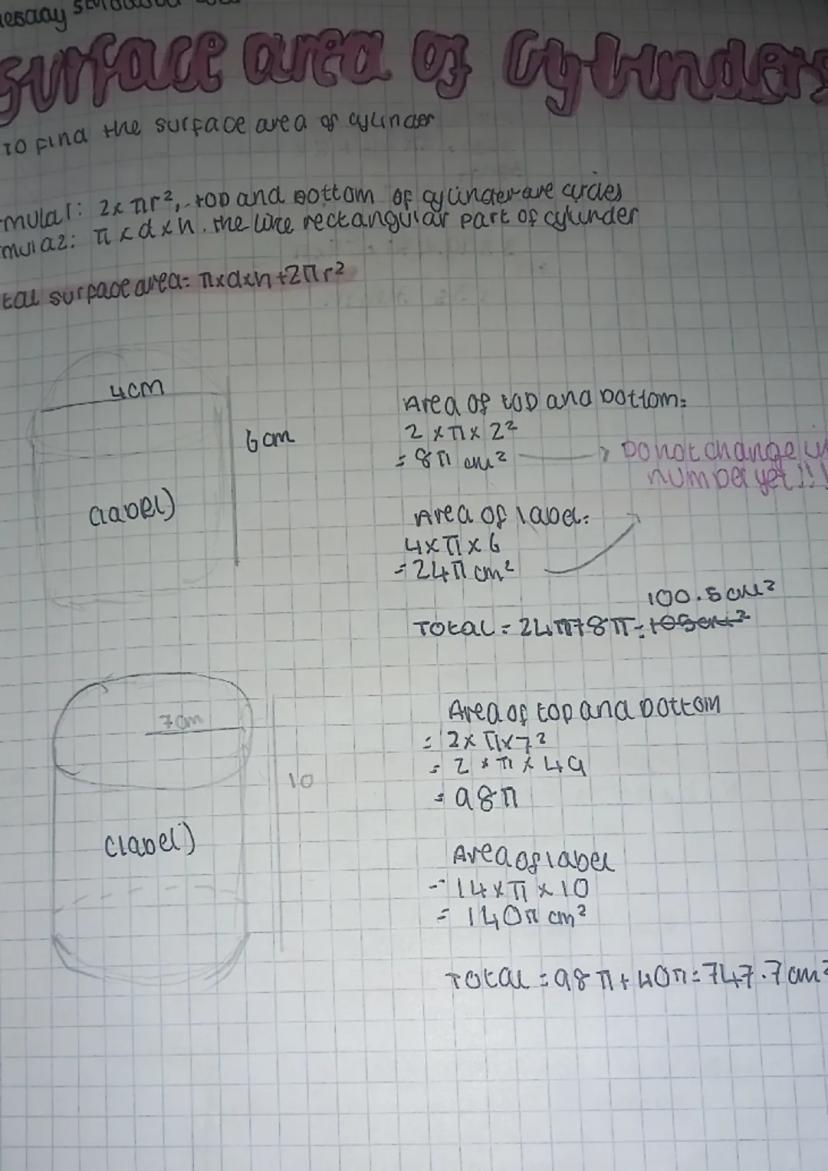 surface area of cylinders
To find the surface area of cylinder
mula1: 2x πr², top and bottom of cylinder are circles
mula2: π x d x h. the like rectangular part of cylinder
tal surface area= πxdxh+2πr²
4cm
6cm
(label)
Area of top and bottom:
2 x π x 2²
= 8π cm²
Do not change
number yet!!!
Area of label:
4xπx6
=24π cm²
100.5cm²
Total = 24π+8π=
7cm
10
(label)
Area of top and bottom
= 2xπx7²
= 2 x π x 49
= 98π
Area of label
= 14xπx10
= 140π cm²
Total = 98π+140π=747.7cm²